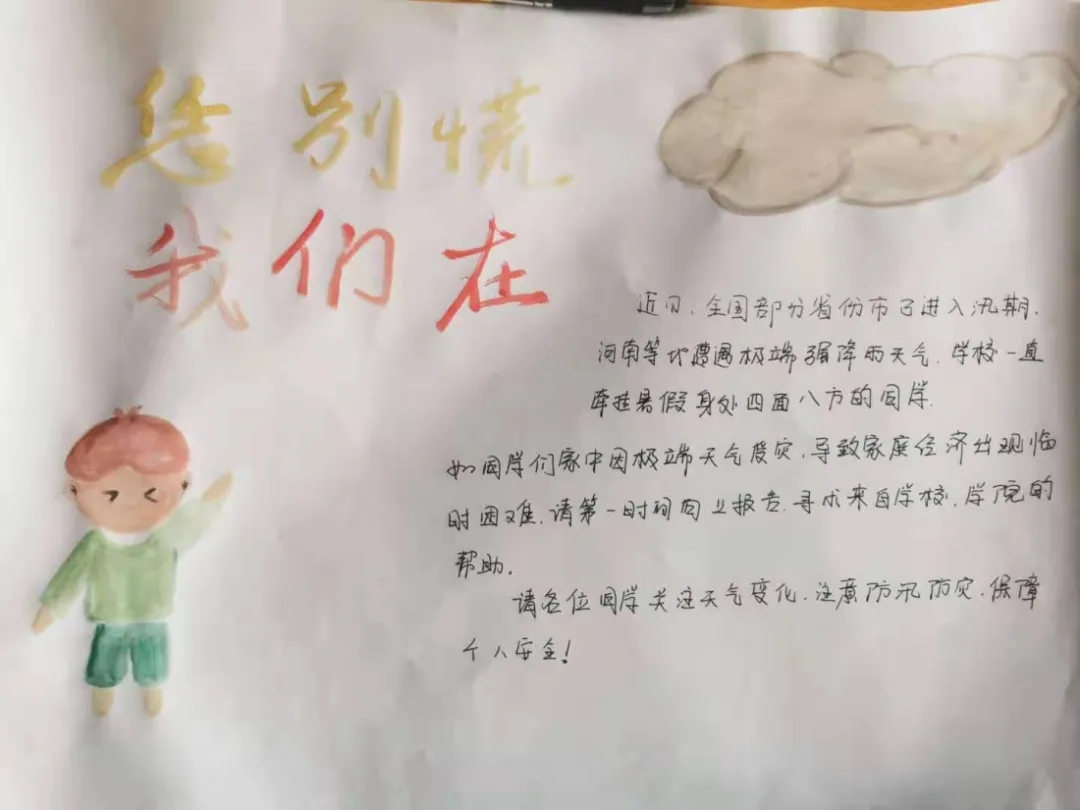 您别慌
我们在
近日，全国部分省份市已进入汛期，
河南等地遭遇极端强降雨天气，学校一直
牵挂暑假身处四面八方的同学。
如同学们家中因极端天气受灾，导致家庭经济出现临
时困难，请第一时间向上报告，寻求来自学校、学院的
帮助。
请各位同学关注天气变化，注意防汛防灾，保障
个人安全！